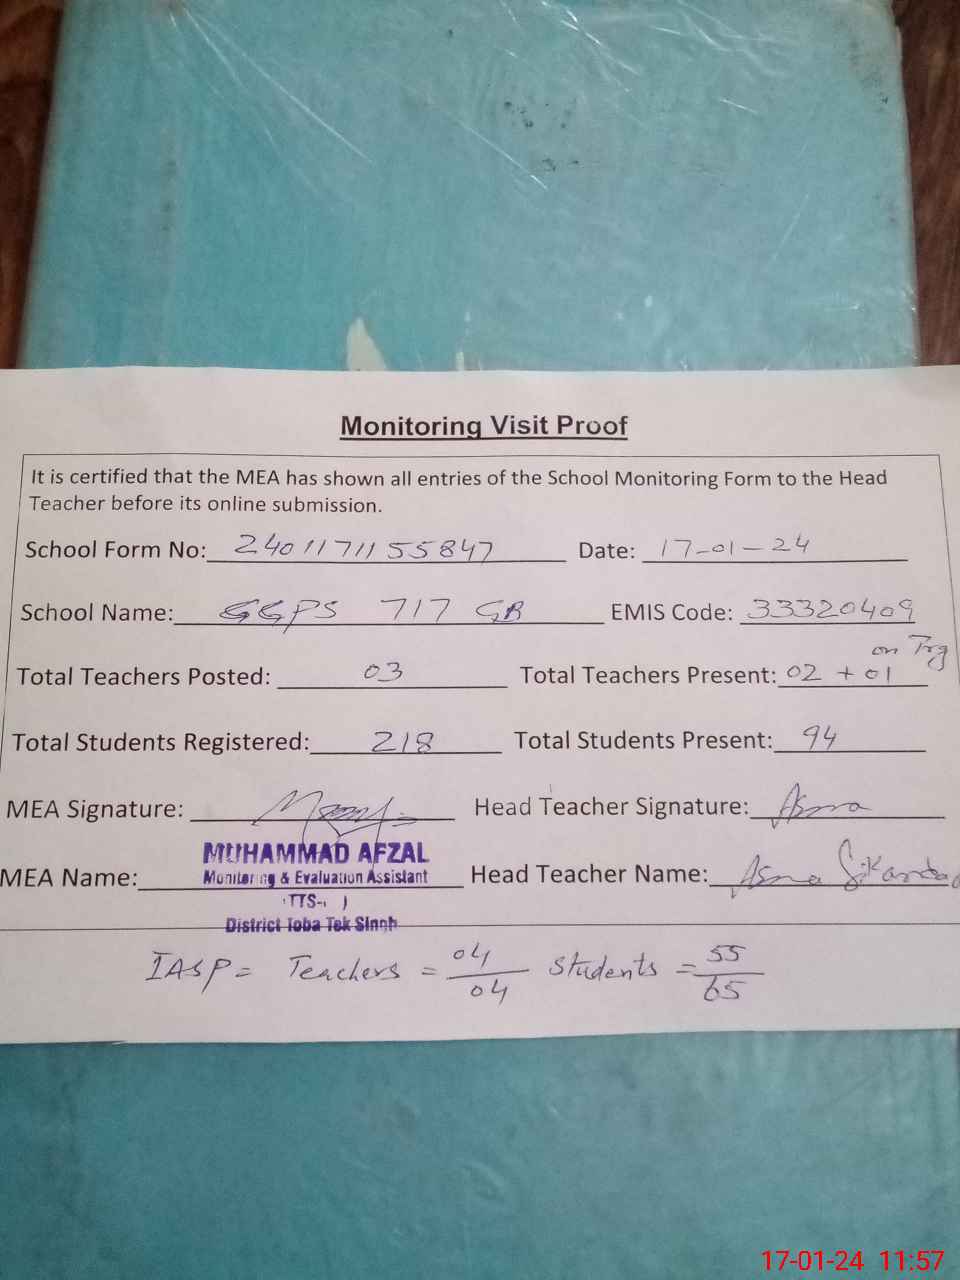 Monitoring Visit Proof
It is certified that the MEA has shown all entries of the School Monitoring Form to the Head
Teacher before its online submission.
School Form No: 2401171155847 Date: 17-01-24
School Name: GGPS 717 GB EMIS Code: 33320409
on Trg
Total Teachers Posted: 03 Total Teachers Present: 02 + 01
Total Students Registered: 218 Total Students Present: 94
MEA Signature: Head Teacher Signature: Asma
MUHAMMAD AFZAL
MEA Name: Monitoring & Evaluation Assistant Head Teacher Name: Asma Sikandar
District Toba Tek Singh
IASP = Teachers = 04/04 Students = 55/65
17-01-24 11:57